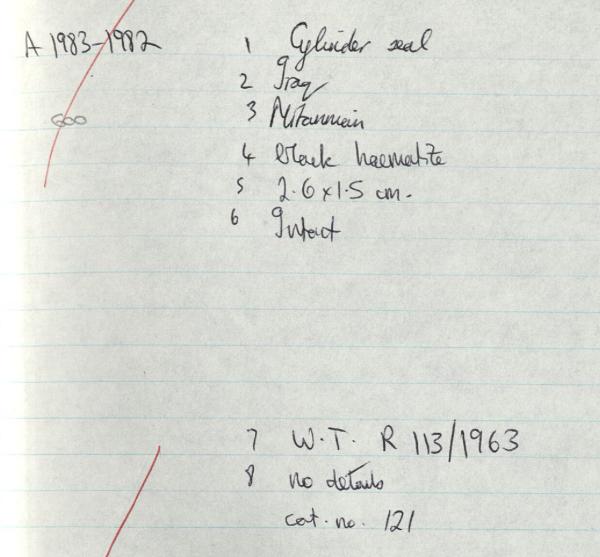 A 1983-1982
1 Cylinder seal
2 Iraq
600
3 Mitannian
4 black haematite
5 2.6 x 1.5 cm.
6 Intact
7 W.T. R 113/1963
8 no details
cat. no. 121